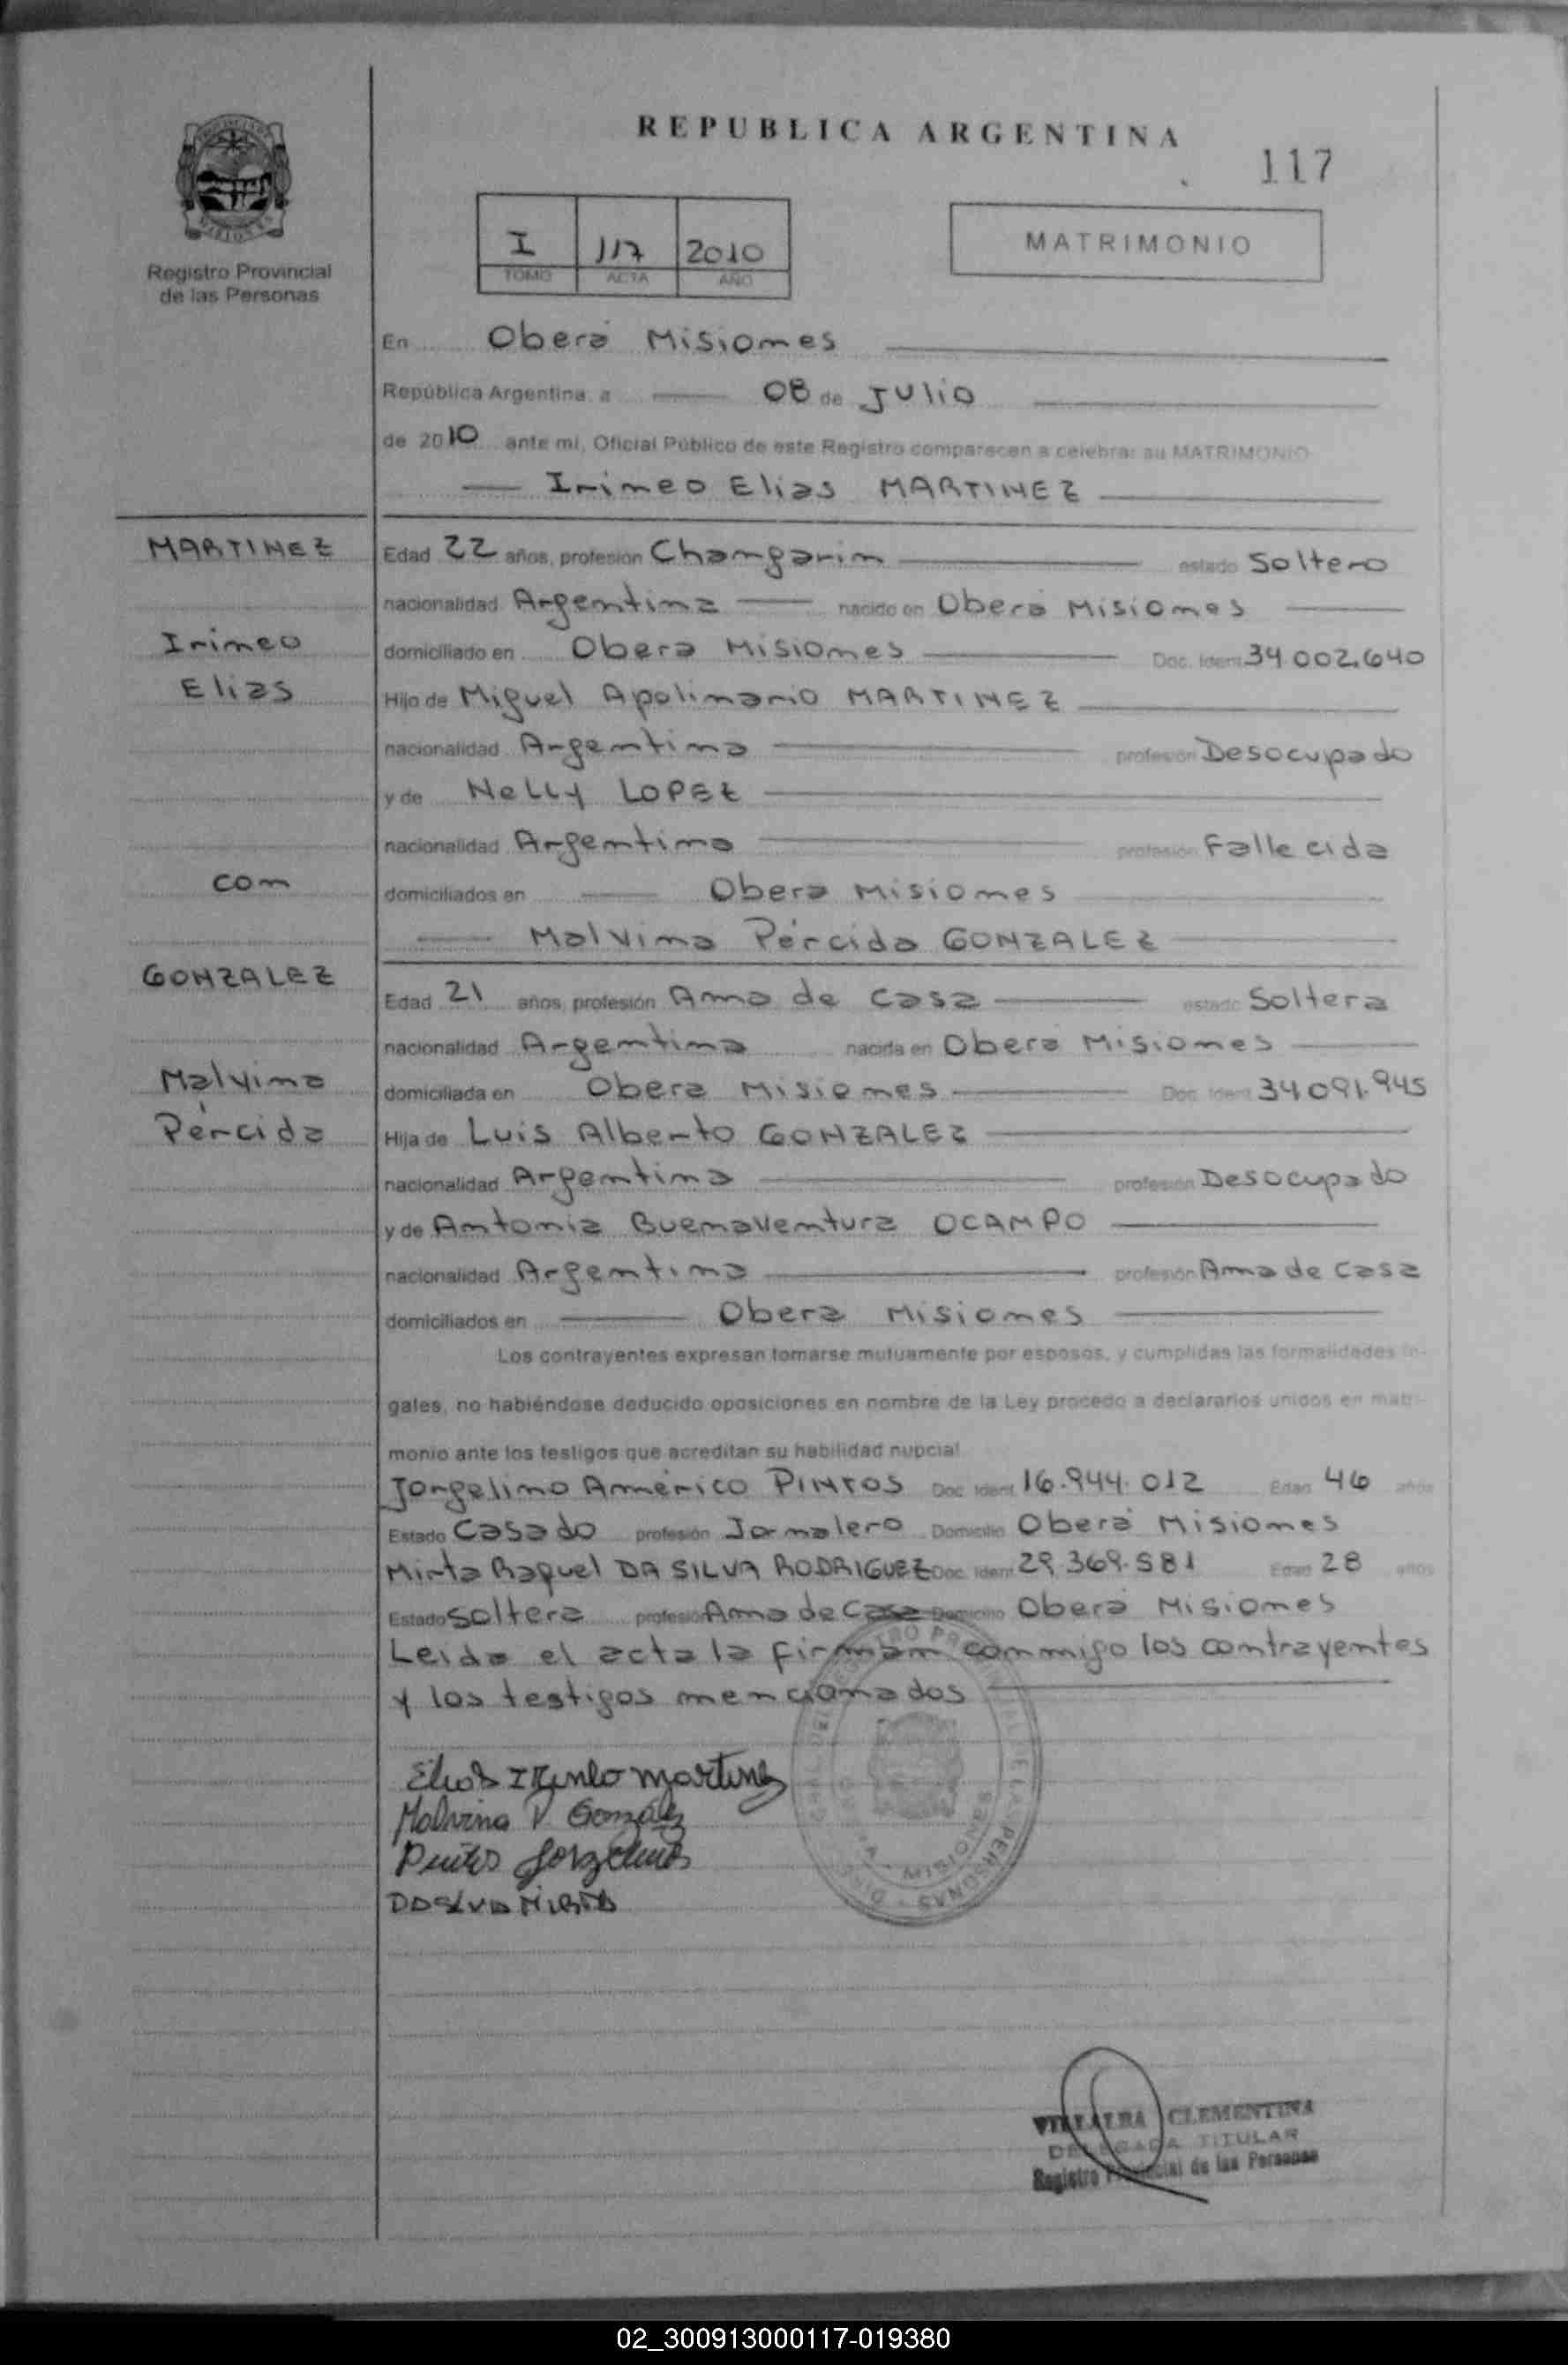 REPUBLICA ARGENTINA
117
Registro Provincial
de las Personas
I 117 2010
TOMO ACTA AÑO
MATRIMONIO
En Oberá Misiones
República Argentina, a 08 de Julio
de 2010 ante mí, Oficial Público de este Registro comparecen a celebrar su MATRIMONIO
Irineo Elias MARTINEZ
MARTINEZ
Irineo
Elias
con
GONZALEZ
Malvina
Pércida
Edad 22 años, profesión Changarin estado Soltero
nacionalidad Argentina nacido en Oberá Misiones
domiciliado en Obera Misiones Doc. Ident. 34 002.640
Hijo de Miguel Apolinario MARTINEZ
nacionalidad Argentina profesión Desocupado
y de Nelly LOPEZ
nacionalidad Argentina profesión Fallecida
domiciliados en Obera Misiones
Malvina Pércida GONZALEZ
Edad 21 años, profesión Ama de Casa estado Soltera
nacionalidad Argentina nacida en Oberá Misiones
domiciliada en Obera Misiones Doc. Ident. 34 091.945
Hija de Luis Alberto GONZALEZ
nacionalidad Argentina profesión Desocupado
y de Antonia Buenaventura OCAMPO
nacionalidad Argentina profesión Ama de Casa
domiciliados en Obera Misiones
Los contrayentes expresan tomarse mutuamente por esposos, y cumplidas las formalidades le-
gales, no habiéndose deducido oposiciones en nombre de la Ley procedo a declararlos unidos en matri-
monio ante los testigos que acreditan su habilidad nupcial
Jorgelino Américo PINTOS Doc. Ident. 16.944.012 Edad 46 años
Estado Casado profesión Jornalero Domicilio Oberá Misiones
Mirta Raquel DA SILVA RODRIGUEZ Doc. Ident. 29.369.581 Edad 28 años
Estado Soltera profesión Ama de Casa Domicilio Oberá Misiones
Leida el acta la firman conmigo los contrayentes
y los testigos mencionados
Elias Irineo Martinez
Malvina P. Gonzalez
Pintos Jorgelino
DASILVA MIRTA
VILLALBA CLEMENTINA
DELEGADA TITULAR
Registro Provincial de las Personas
02_300913000117-019380